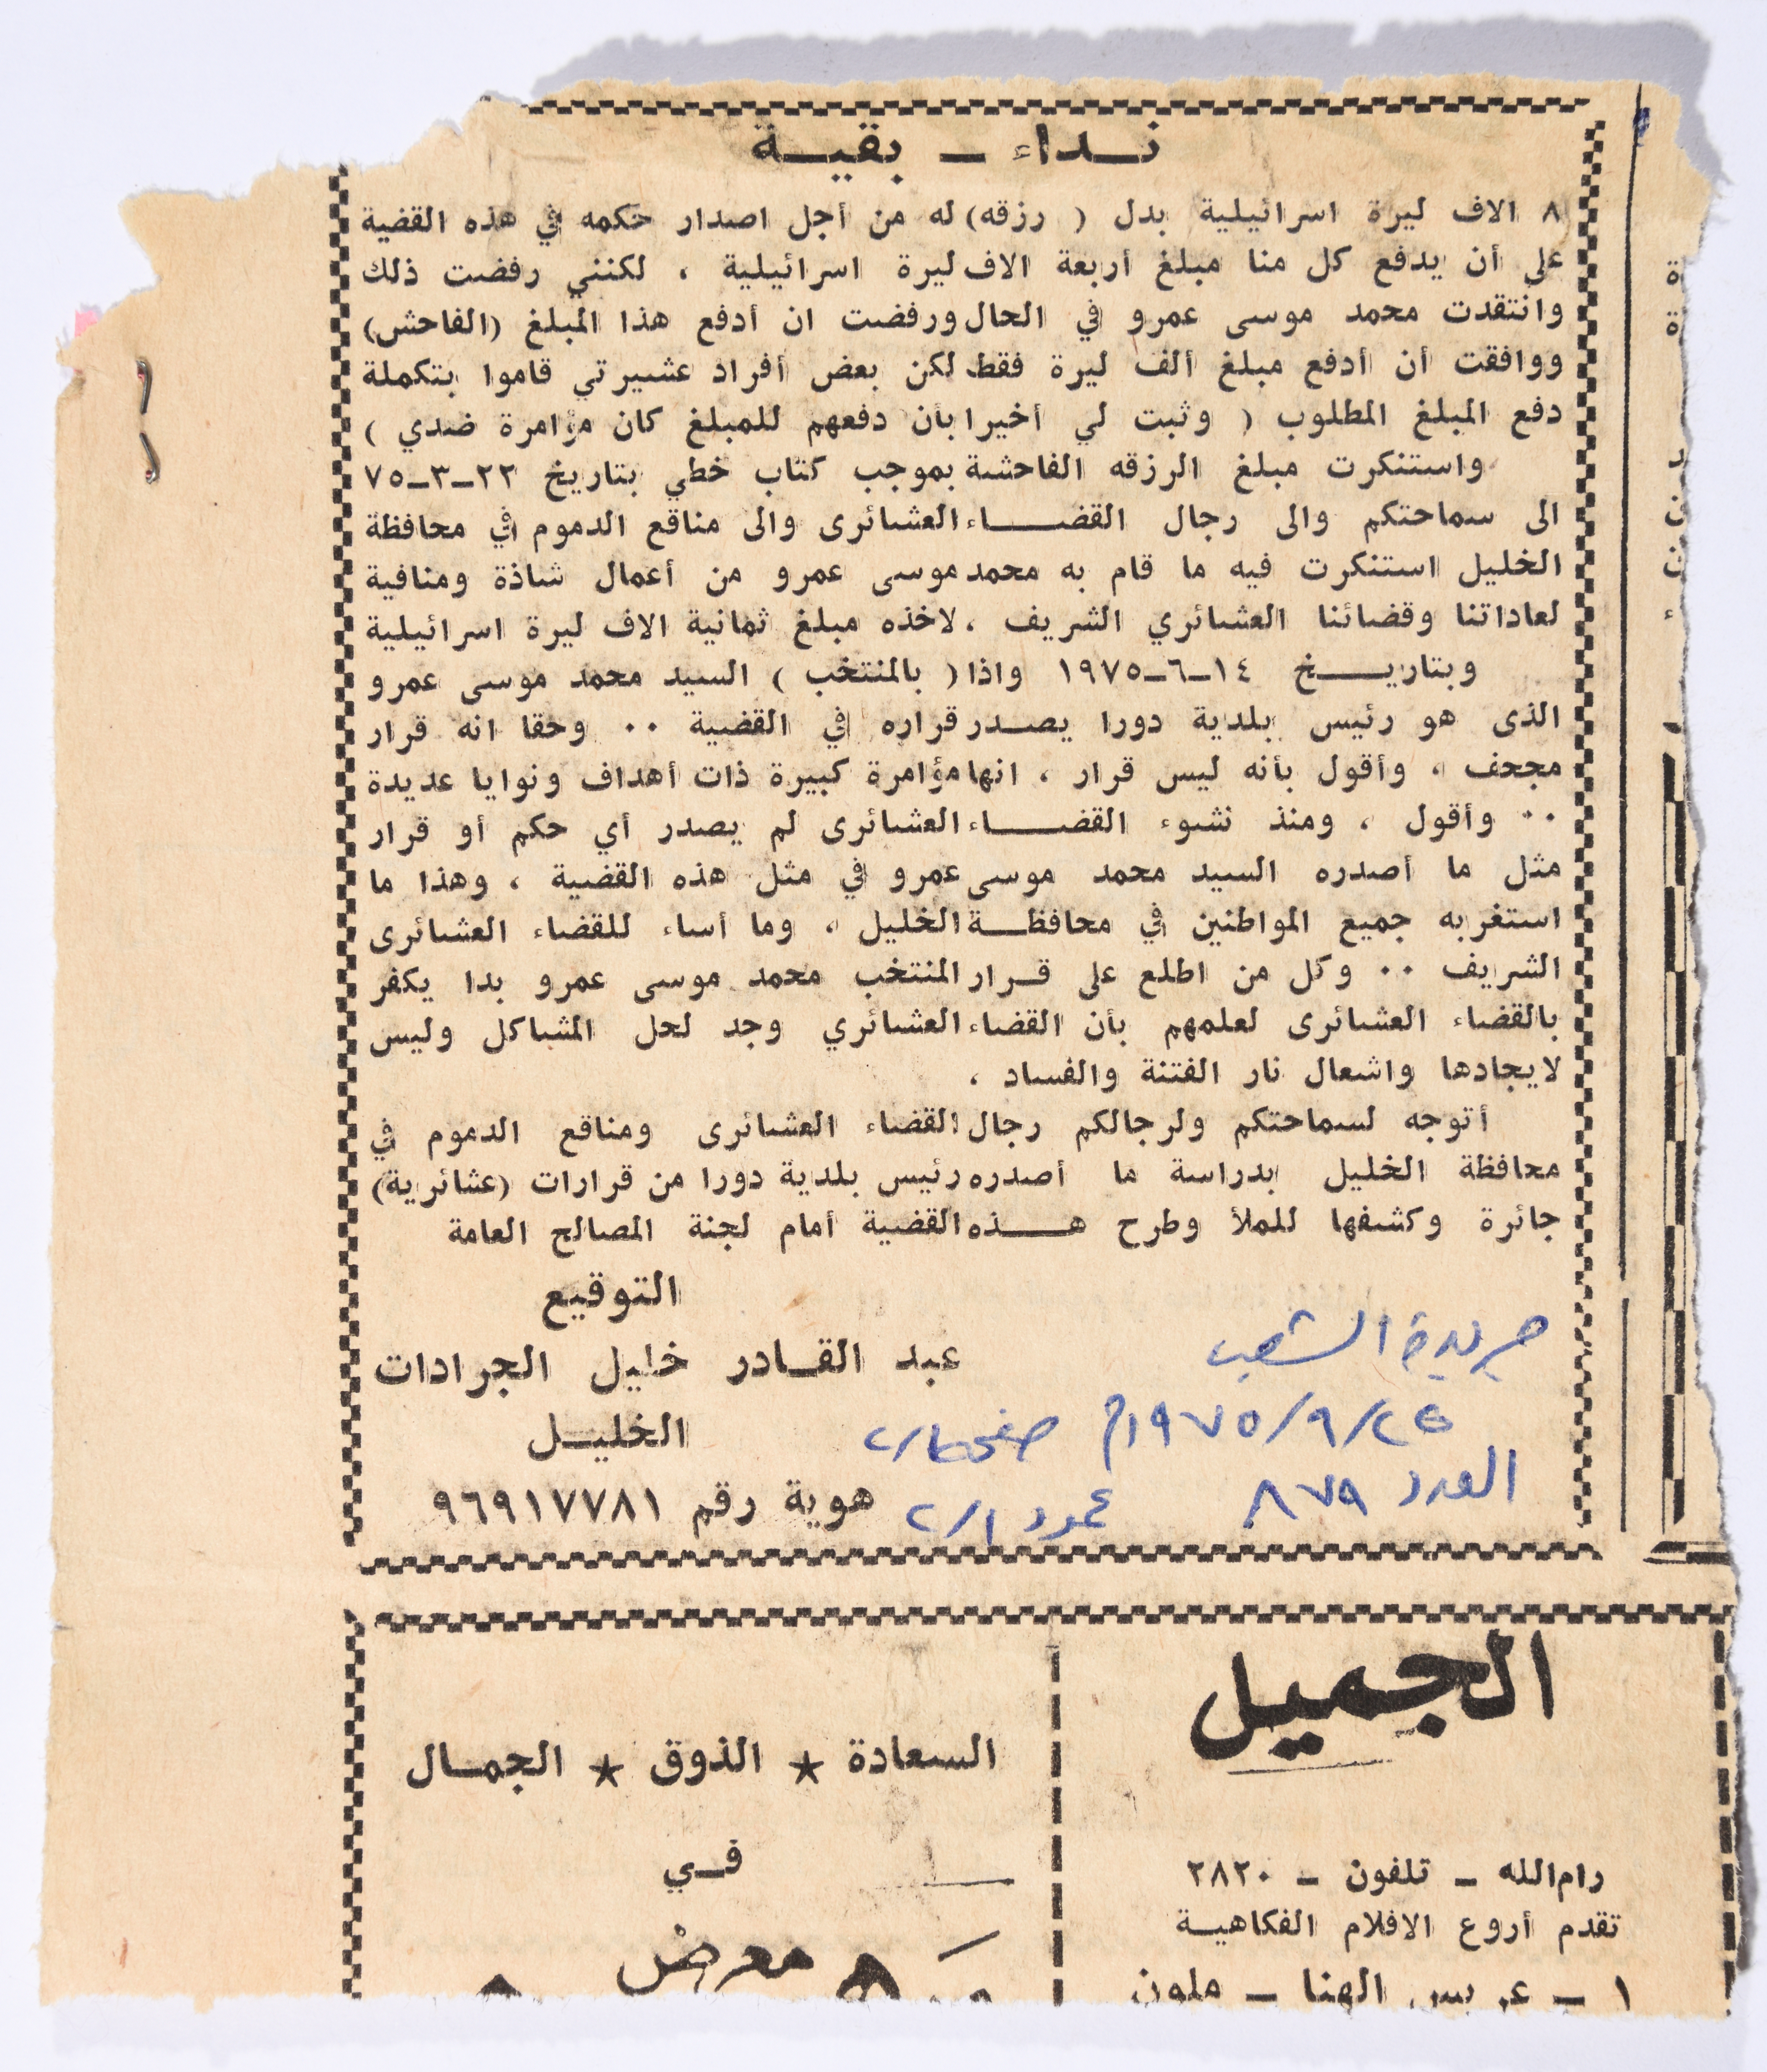 نداء - بقية
٨ الاف ليرة اسرائيلية بدل ( رزقه) له من أجل اصدار حكمه في هذه القضية
على أن يدفع كل منا مبلغ أربعة الاف ليرة اسرائيلية ، لكنني رفضت ذلك
وانتقدت محمد موسى عمرو في الحال ورفضت ان أدفع هذا المبلغ (الفاحش)
ووافقت أن أدفع مبلغ ألف ليرة فقط لكن بعض أفراد عشيرتي قاموا بتكملة
دفع المبلغ المطلوب ( وثبت لي أخيرا بأن دفعهم للمبلغ كان مؤامرة ضدي )
واستنكرت مبلغ الرزقه الفاحشة بموجب كتاب خطي بتاريخ ٢٣-٣-٧٥
الى سماحتكم والى رجال القضاء العشائرى والى مناقع الدموم في محافظة
الخليل استنكرت فيه ما قام به محمد موسى عمرو من أعمال شاذة ومنافية
لعاداتنا وقضائنا العشائري الشريف ، لاخذه مبلغ ثمانية الاف ليرة اسرائيلية
وبتاريخ ١٤-٦-١٩٧٥ واذا ( بالمنتخب ) السيد محمد موسى عمرو
الذى هو رئيس بلدية دورا يصدر قراره في القضية ٠٠ وحقا انه قرار
مجحف ، وأقول بأنه ليس قرار ، انها مؤامرة كبيرة ذات أهداف ونوايا عديدة
٠٠ وأقول ، ومنذ نشوء القضاء العشائرى لم يصدر أي حكم أو قرار
مثل ما أصدره السيد محمد موسى عمرو في مثل هذه القضية ، وهذا ما
استغربه جميع المواطنين في محافظة الخليل ، وما أساء للقضاء العشائرى
الشريف ٠٠ وكل من اطلع على قرار المنتخب محمد موسى عمرو بدا يكفر
بالقضاء العشائرى لعلمهم بأن القضاء العشائري وجد لحل المشاكل وليس
لايجادها واشعال نار الفتنة والفساد ،
أتوجه لسماحتكم ولرجالكم رجال القضاء العشائرى ومناقع الدموم في
محافظة الخليل بدراسة ما أصدره رئيس بلدية دورا من قرارات (عشائرية)
جائرة وكشفها للملأ وطرح هذه القضية أمام لجنة المصالح العامة
التوقيع
عبد القادر خليل الجرادات
الخليل
هوية رقم ٩٦٩١٧٧٨١
جريدة الشعب
٢٤/٩/١٩٧٥م صفحة/٢
العدد ٨٧٩ عمود ١/٢
الجميل
رام الله - تلفون - ٢٨٢٠
تقدم أروع الافلام الفكاهية
١ - عريس الهنا - ملون
السعادة * الذوق * الجمال
في
معرض